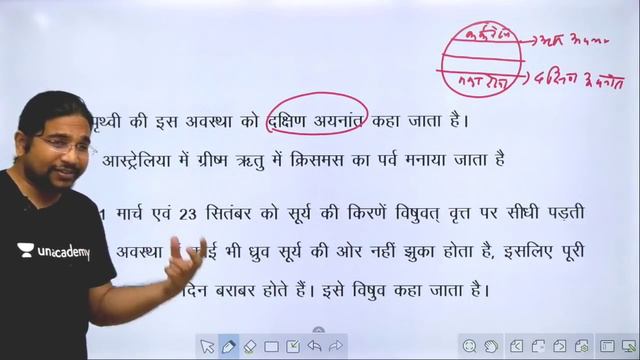 कर्क रेखा
मकर रेखा
पृथ्वी की इस अवस्था को दक्षिण अयनांत कहा जाता है।
आस्ट्रेलिया में ग्रीष्म ऋतु में क्रिसमस का पर्व मनाया जाता है
1 मार्च एवं 23 सितंबर को सूर्य की किरणें विषुवत् वृत्त पर सीधी पड़ती
अवस्था भी ध्रुव सूर्य की ओर नहीं झुका होता है, इसलिए पूरी
दिन बराबर होते हैं। इसे विषुव कहा जाता है।
unacademy